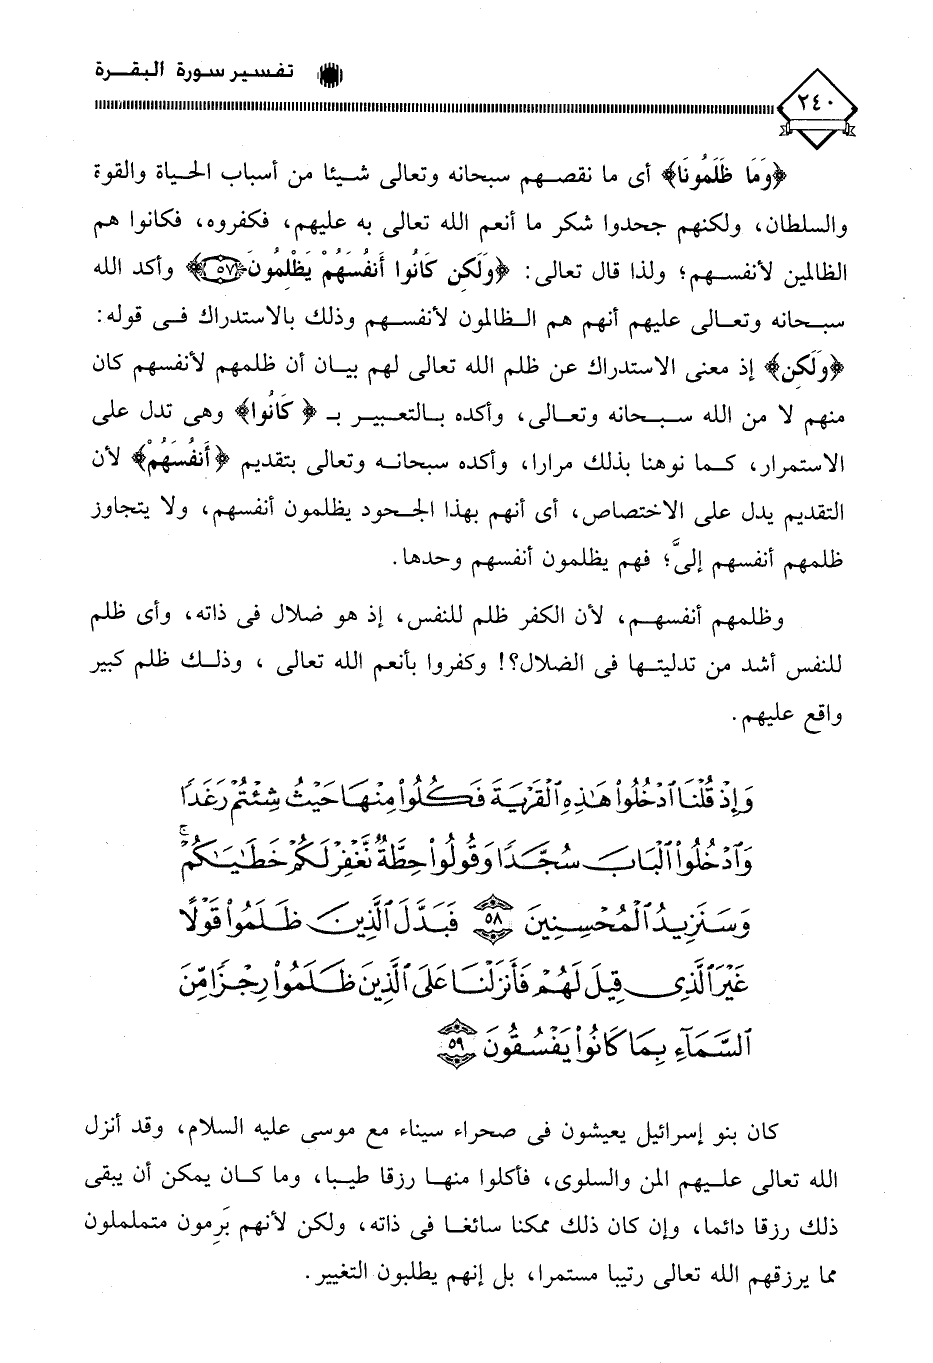 تفسير سورة البقرة
٢٤٠
﴿وَمَا ظَلَمُونَا﴾ أى ما نقصهم سبحانه وتعالى شيئا من أسباب الحياة والقوة
والسلطان، ولكنهم جحدوا شكر ما أنعم الله تعالى به عليهم، فكفروه، فكانوا هم
الظالمين لأنفسهم؛ ولذا قال تعالى: ﴿وَلَكِن كَانُوا أَنفُسَهُمْ يَظْلِمُونَ ﴿٥٧﴾﴾ وأكد الله
سبحانه وتعالى عليهم أنهم هم الظالمون لأنفسهم وذلك بالاستدراك فى قوله:
﴿وَلَكِن﴾ إذ معنى الاستدراك عن ظلم الله تعالى لهم بيان أن ظلمهم لأنفسهم كان
منهم لا من الله سبحانه وتعالى، وأكده بالتعبير بـ ﴿كَانُوا﴾ وهى تدل على
الاستمرار، كما نوهنا بذلك مرارا، وأكده سبحانه وتعالى بتقديم ﴿أَنفُسَهُمْ﴾ لأن
التقديم يدل على الاختصاص، أى أنهم بهذا الجحود يظلمون أنفسهم، ولا يتجاوز
ظلمهم أنفسهم إلىَّ؛ فهم يظلمون أنفسهم وحدها.
وظلمهم أنفسهم، لأن الكفر ظلم للنفس، إذ هو ضلال فى ذاته، وأى ظلم
للنفس أشد من تدليتها فى الضلال؟! وكفروا بأنعم الله تعالى ، وذلك ظلم كبير
واقع عليهم.
وَإِذْ قُلْنَا ٱدْخُلُوا۟ هَٰذِهِ ٱلْقَرْيَةَ فَكُلُوا۟ مِنْهَا حَيْثُ شِئْتُمْ رَغَدًا
وَٱدْخُلُوا۟ ٱلْبَابَ سُجَّدًا وَقُولُوا۟ حِطَّةٌ نَّغْفِرْ لَكُمْ خَطَٰيَٰكُمْ ۚ
وَسَنَزِيدُ ٱلْمُحْسِنِينَ ﴿٥٨﴾ فَبَدَّلَ ٱلَّذِينَ ظَلَمُوا۟ قَوْلًا
غَيْرَ ٱلَّذِى قِيلَ لَهُمْ فَأَنزَلْنَا عَلَى ٱلَّذِينَ ظَلَمُوا۟ رِجْزًا مِّنَ
ٱلسَّمَآءِ بِمَا كَانُوا۟ يَفْسُقُونَ ﴿٥٩﴾
كان بنو إسرائيل يعيشون فى صحراء سيناء مع موسى عليه السلام، وقد أنزل
الله تعالى عليهم المن والسلوى، فأكلوا منها رزقا طيبا، وما كان يمكن أن يبقى
ذلك رزقا دائما، وإن كان ذلك ممكنا سائغا فى ذاته، ولكن لأنهم بَرِمون متململون
مما يرزقهم الله تعالى رتيبا مستمرا، بل إنهم يطلبون التغيير.